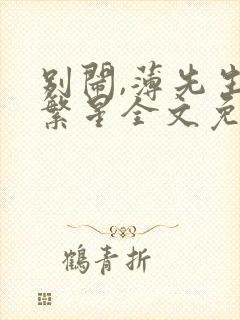 别闹,薄先生
繁星全文免
鹤青折